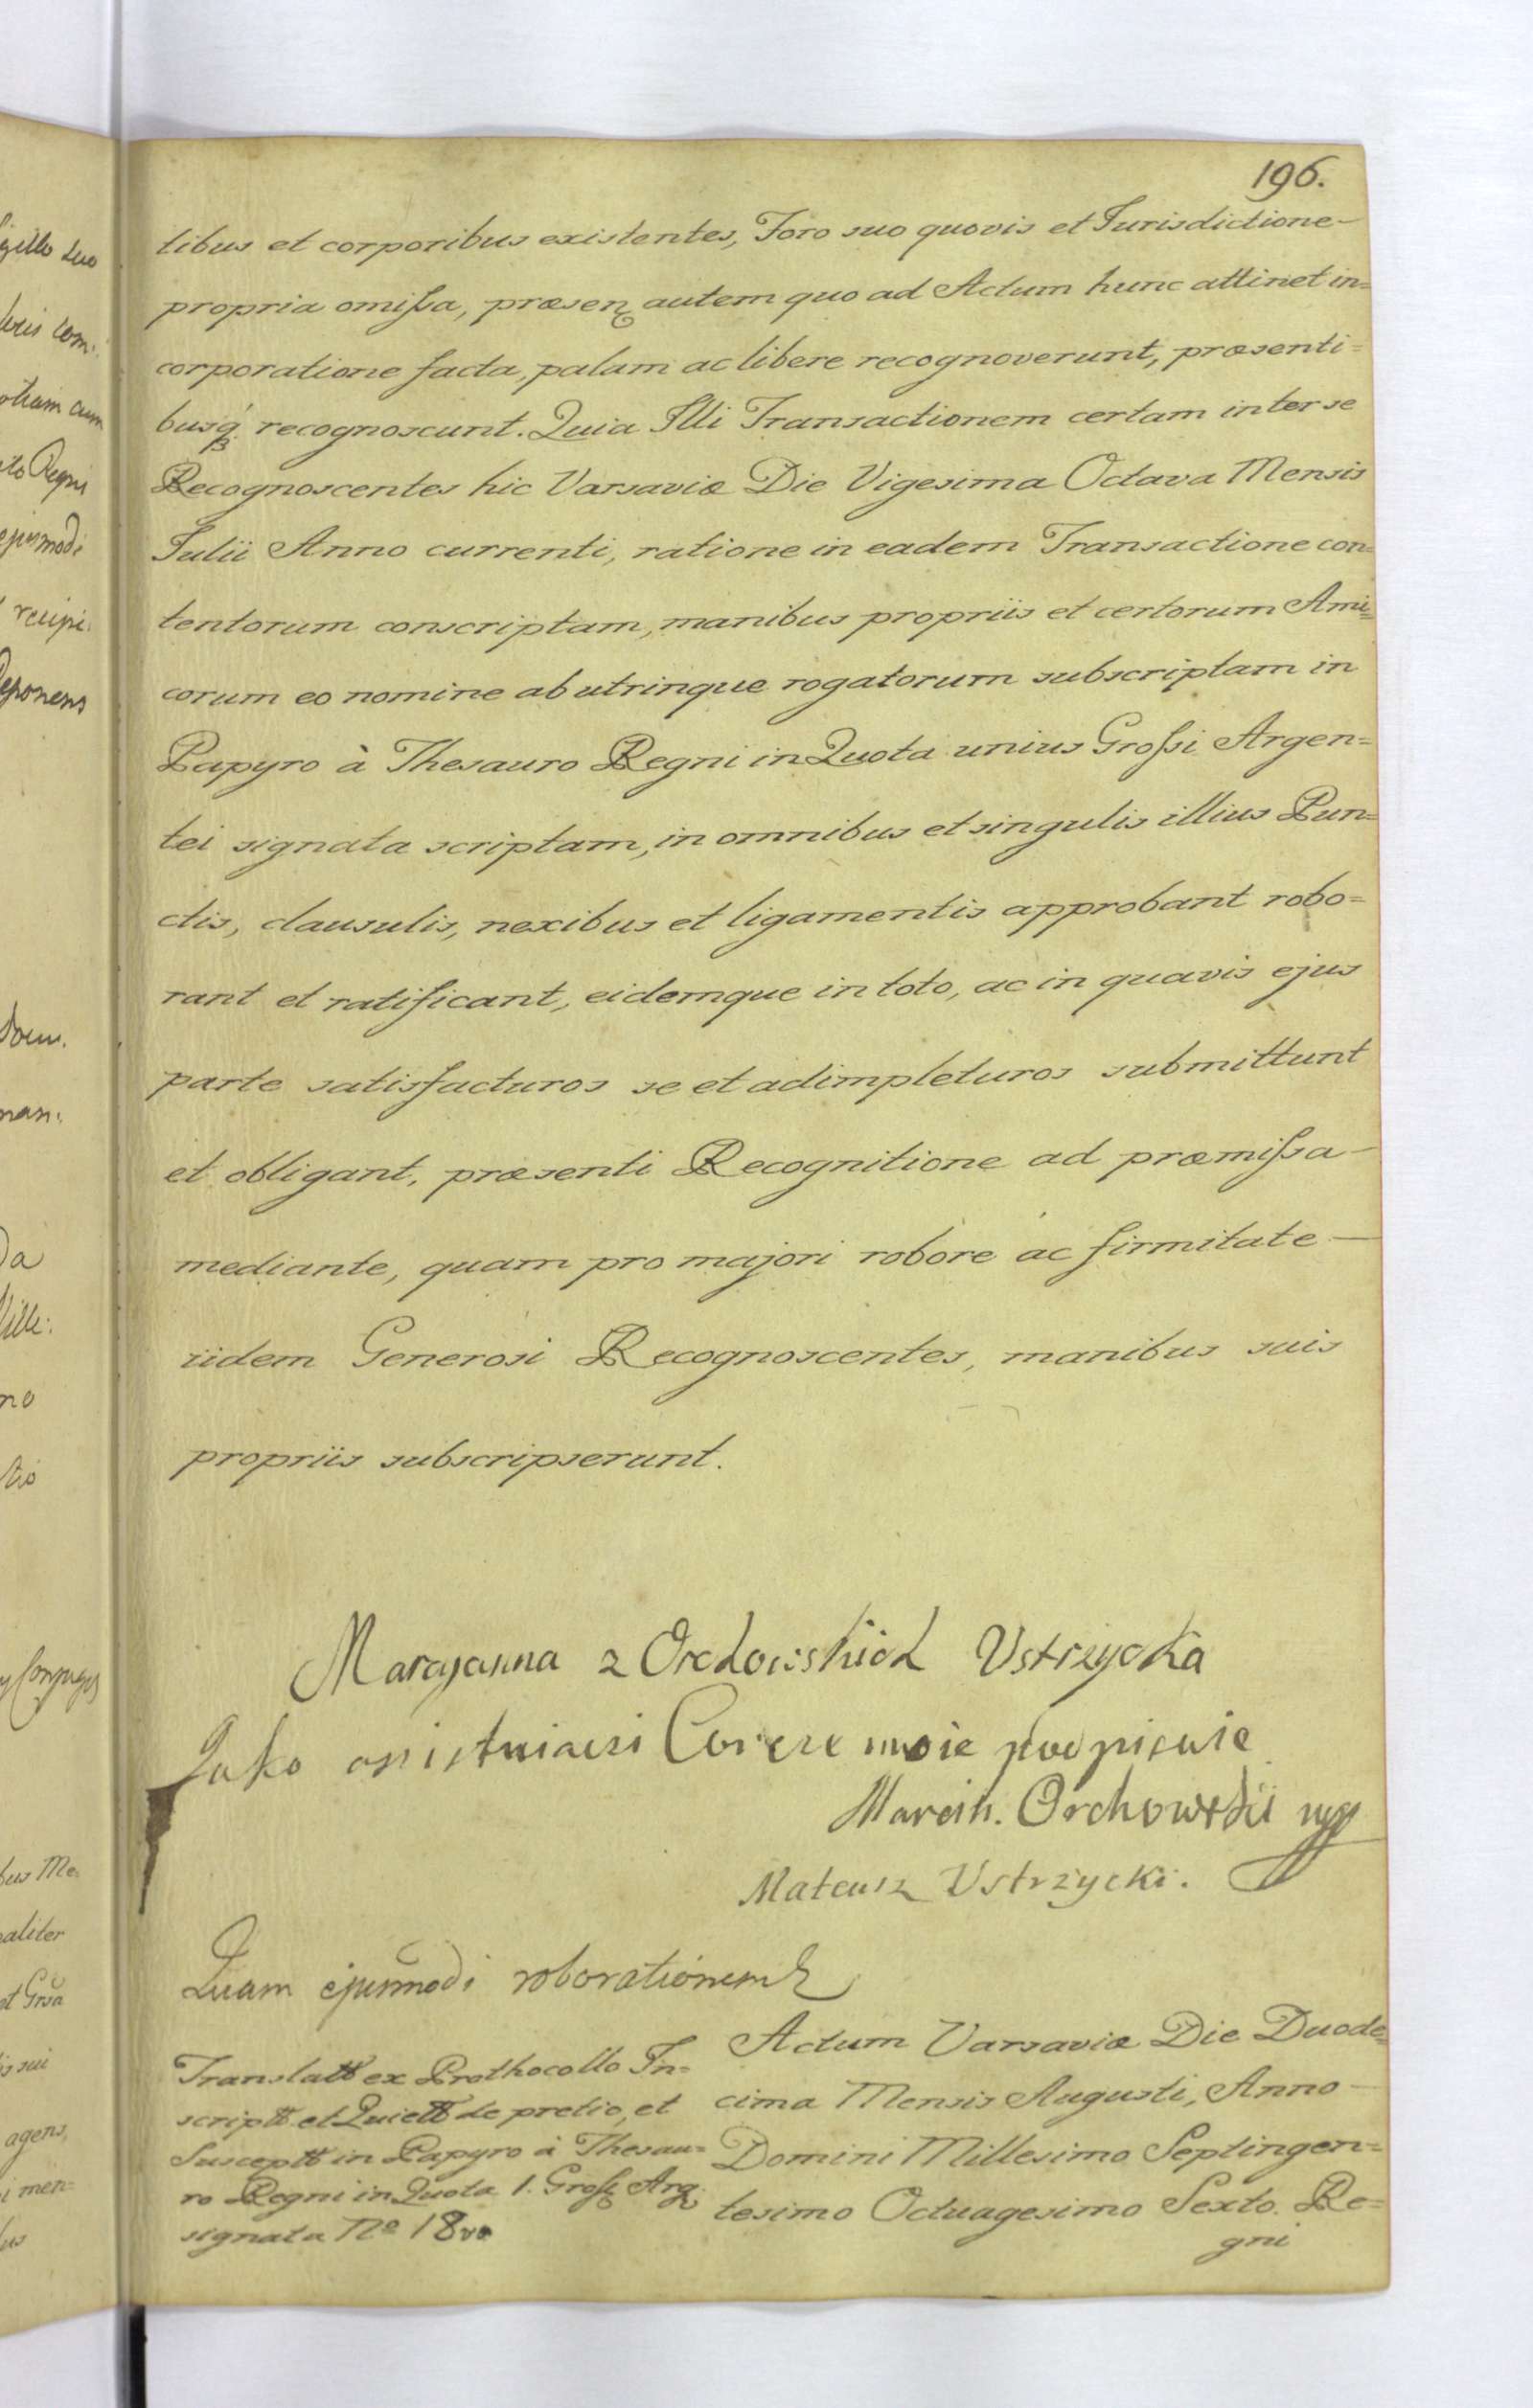 196.
libus et corporibus existentes, Foro suo quovis et Jurisdictione
propria omissa, præsen autem quo ad Actum hunc attinet in=
corporatione facta, palam ac libere recognoverunt, præsenti=
busq recognoscunt. Quia Illi Transactionem certam inter se
Recognoscentes hic Varsaviæ Die Vigesima Octava Mensis
Julii Anno currenti, ratione in eadem Transactione con=
tentorum conscriptam, manibus propriis et certorum Ami=
corum eo nomine ab utrinque rogatorum subscriptam in
Papyro à Thesauro Regni in Quota unius Grossi Argen=
tei signata scriptam, in omnibus et singulis illius Pun=
ctis, clausulis, nexibus et ligamentis approbant robo=
rant et ratificant, eidemque in toto, ac in quavis ejus
parte satisfacturos se et adimpleturos submittunt
et obligant, præsenti Recognitione ad præmissa
mediante, quam pro majori robore ac firmitate
iidem Generosi Recognoscentes, manibus suis
propriis subscripserunt.
Maryanna z Orchowskich Ustrzycka
Jako Corce moie podpisuie
Marcin. Orchowskii mp
Mateusz Ustrzycki.
Quam ejusmodi roborationem
Translatt ex Prothocollo In=
scriptt et Quiett de pretio, et
Susceptt in Papyro à Thesau=
ro Regni in Quota 1. Gross Arg
signata No 18
Actum Varsaviæ Die Duode=
cima Mensis Augusti, Anno
Domini Millesimo Septingen=
tesimo Octuagesimo Sexto. Re=
gni